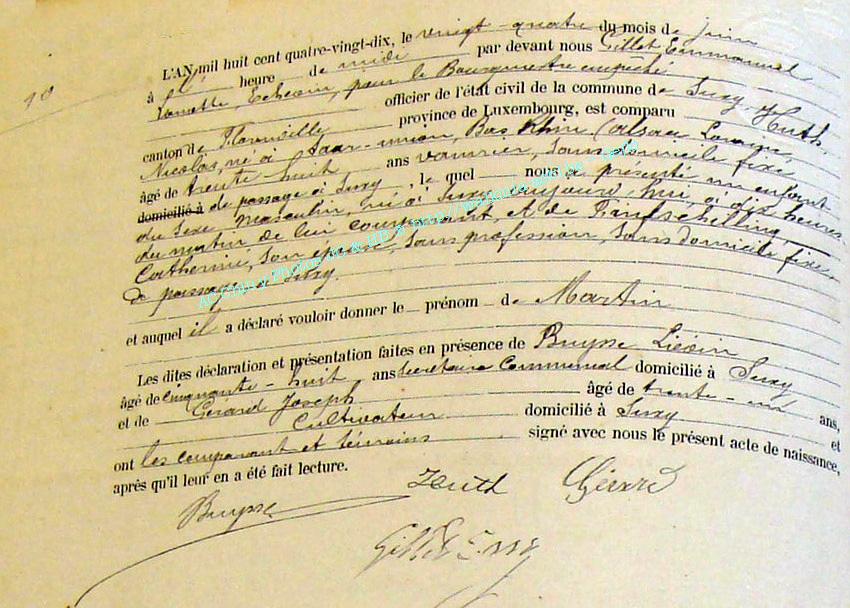 10
L'AN mil huit cent quatre-vingt-dix, le vingt-quatre du mois de juin
à heure de midi par devant nous Gillet Emmanuel
Echevin, pour le Bourgmestre empêché
officier de l'état civil de la commune de Suxy
canton de Florenville province de Luxembourg, est comparu Huth,
Nicolas, né à Saar-union, Bas Rhin (alsace Lorraine,
âgé de trente-huit ans vannier, sans domicile fixe
domicilié à de passage à Suxy, le quel nous a présenté un enfant
du sexe masculin, né à Suxy aujourd'hui, à dix heures
du matin de lui comparant, et de
Catherine, son épouse, sans profession, sans domicile fixe,
de passage à Suxy.
et auquel il a déclaré vouloir donner le prénom de Martin
Les dites déclaration et présentation faites en présence de Buysse Liévin
âgé de cinquante-huit ans secrétaire communal domicilié à Suxy
et de Gérard Joseph âgé de trente-un ans,
cultivateur domicilié à Suxy et
ont les comparant et témoins signé avec nous le présent acte de naissance,
après qu'il leur en a été fait lecture.
Buysse Huth Gérard
Gillet Emm